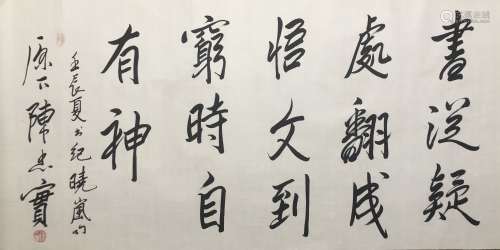 書從疑
處翻成
悟文到
窮時自
有神
壬辰夏书纪晓岚句
原下陳忠實